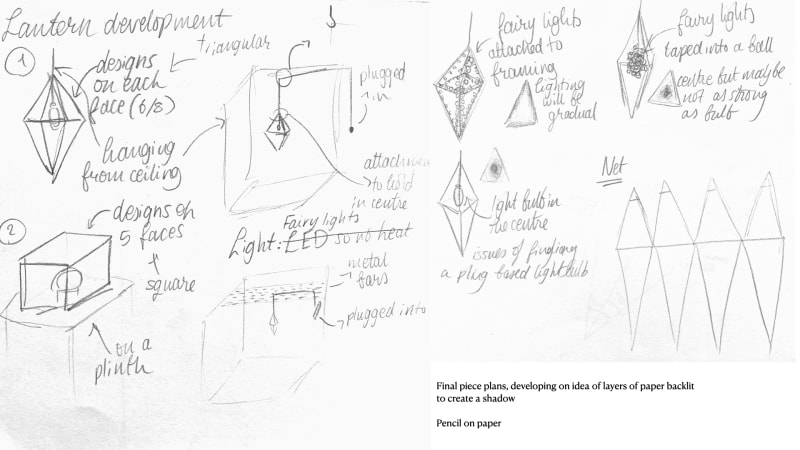 Lantern development
1
designs
on each
face (6/8)
triangular
hanging
from ceiling
plugged
in
attachment
to hold
in centre
2
designs on
5 faces
+
square
on a
plinth
Fairy lights
Light: LED so no heat
metal
bars
plugged into
fairy lights
attached to
framing
lighting
will be
gradual
fairy lights
taped into a ball
centre but maybe
not as strong
as bulb
light bulb in
the centre
issues of finding
a plug based lightbulb
Net
Final piece plans, developing on idea of layers of paper backlit
to create a shadow
Pencil on paper